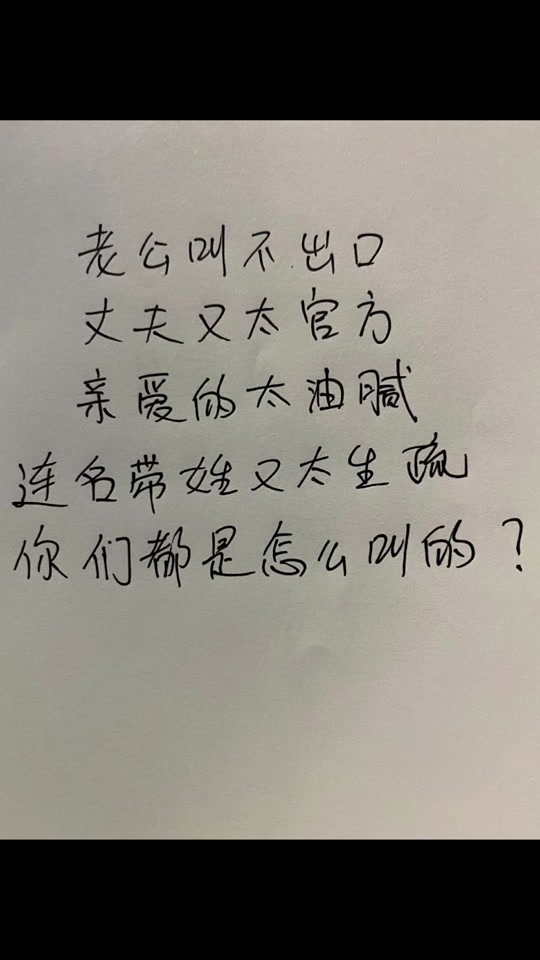 老公叫不出口
丈夫又太官方
亲爱的太油腻
连名带姓又太生疏
你们都是怎么叫的？